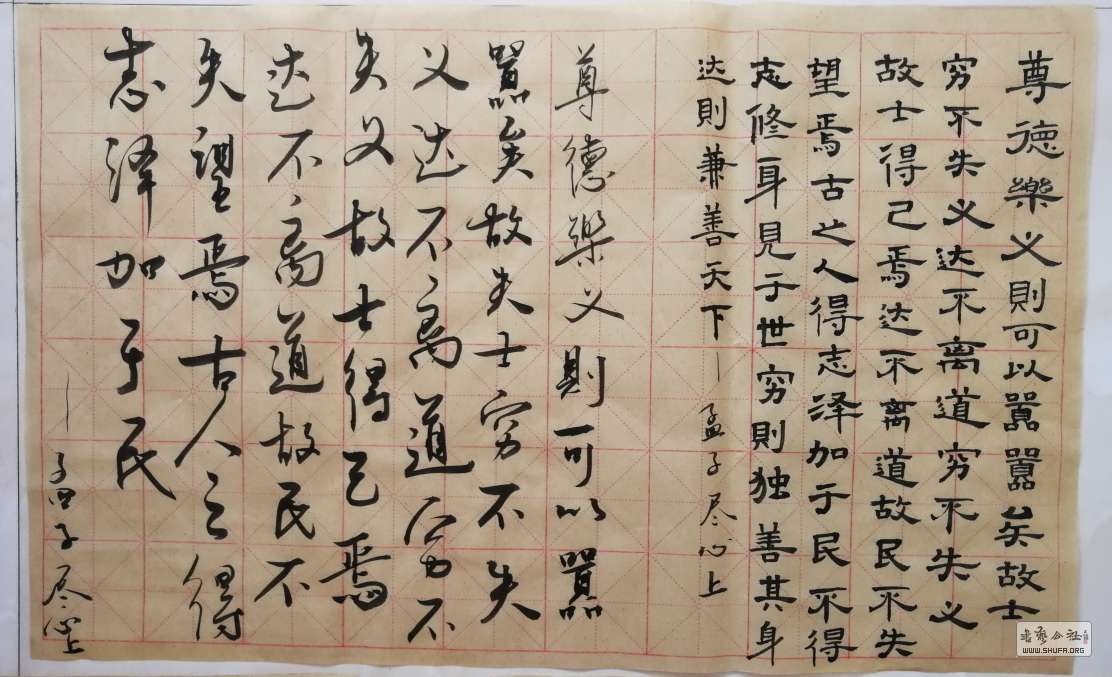 尊德樂义則可以嚣嚣矣故士
穷不失义达不离道穷不失义
故士得己焉达不离道故民不失
望焉古之人得志泽加于民不得
志修身見于世穷則独善其身
达則兼善天下—孟子尽心上
尊德樂义則可以嚣
嚣矣故失士穷不失
义达不离道穷不
失义故士得己焉
达不离道故民不
失望焉古人之得
志泽加于民
—孟子尽心上
书艺公社
WWW.SHUFA.ORG